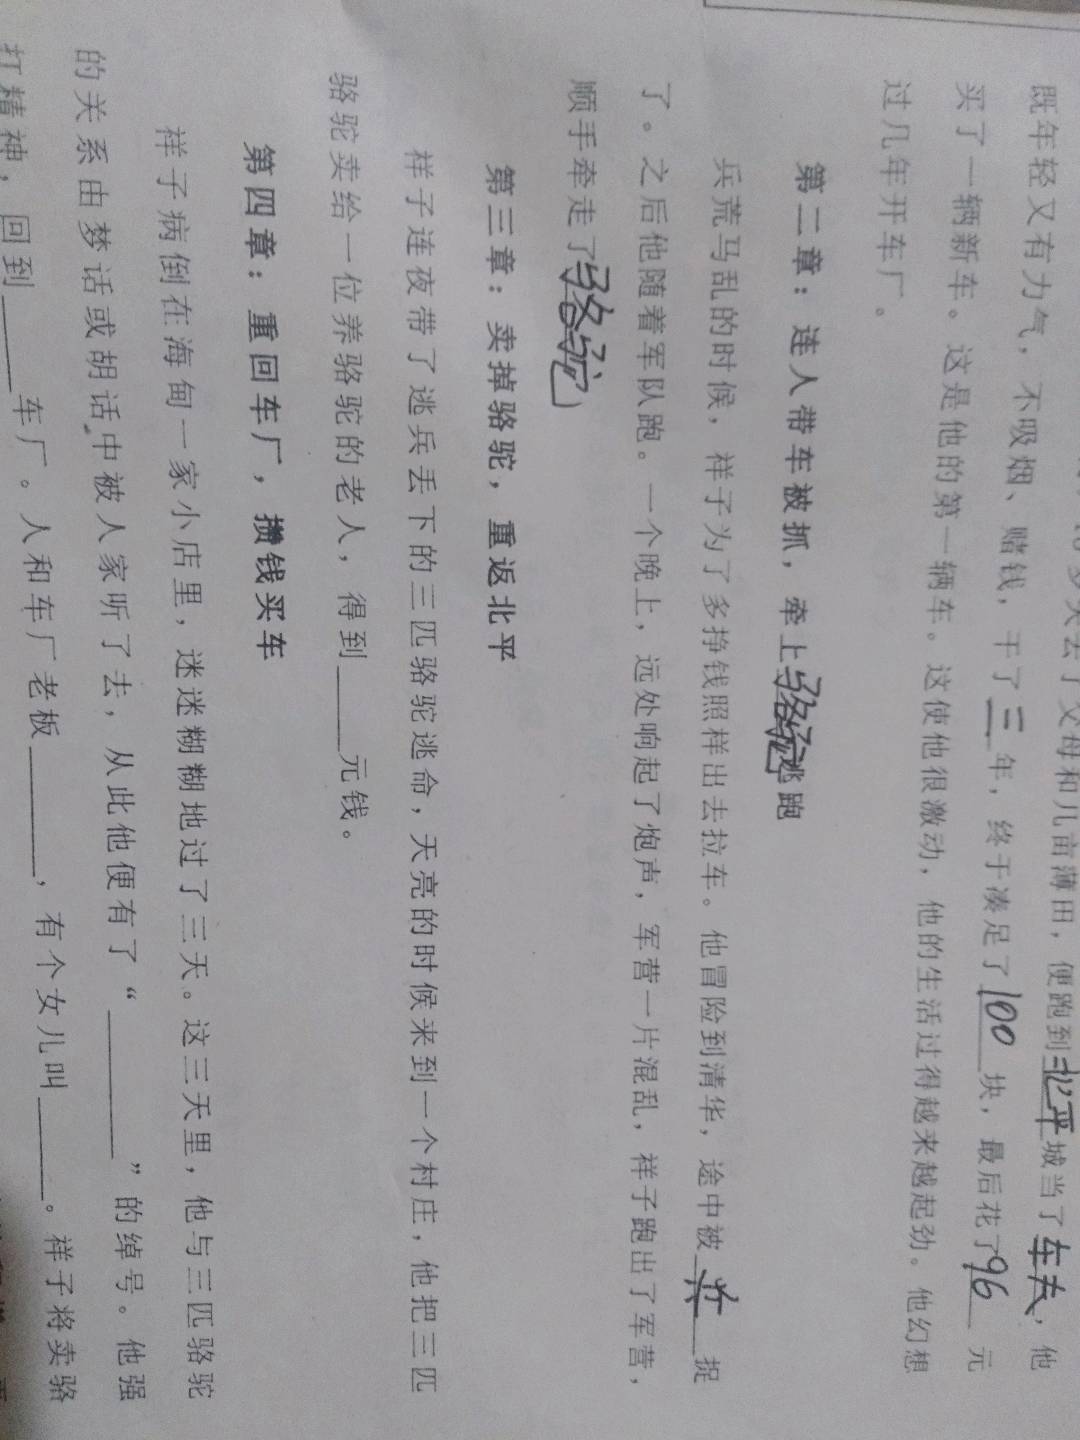 多岁失去了父母和几亩薄田，便跑到北平城当了车夫，他
既年轻又有力气，不吸烟、赌钱，干了三年，终于凑足了100块，最后花了96元
买了一辆新车。这是他的第一辆车。这使他很激动，他的生活过得越来越起劲。他幻想
过几年开车厂。
第二章：连人带车被抓，牵上骆驼逃跑
兵荒马乱的时候，祥子为了多挣钱照样出去拉车。他冒险到清华，途中被兵捉
了。之后他随着军队跑。一个晚上，远处响起了炮声，军营一片混乱，祥子跑出了军营，
顺手牵走了骆驼
第三章：卖掉骆驼，重返北平
样子连夜带了逃兵丢下的三匹骆驼逃命，天亮的时候来到一个村庄，他把三匹
骆驼卖给一位养骆驼的老人，得到____元钱。
第四章：重回车厂，攒钱买车
祥子病倒在海甸一家小店里，迷迷糊糊地过了三天。这三天里，他与三匹骆驼
的关系由梦话或胡话中被人家听了去，从此他便有了“______”的绰号。他强
打精神，回到____车厂。人和车厂老板______，有个女儿叫_____。祥子将卖骆